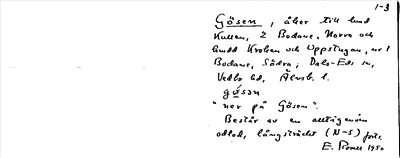 1-3
Gösen, åker till hmd
Kullen, 2 Bodane, Norra och
hmdd Kroken och Uppstugan, nr 1
Bodane, Södra; Dals-Eds sn,
Vedbo hd, Älvsb. l.
gösən
"ner på Gösen".
Består av en alltigenom
odlad, långsträckt (N-S) forts.
E. 1950